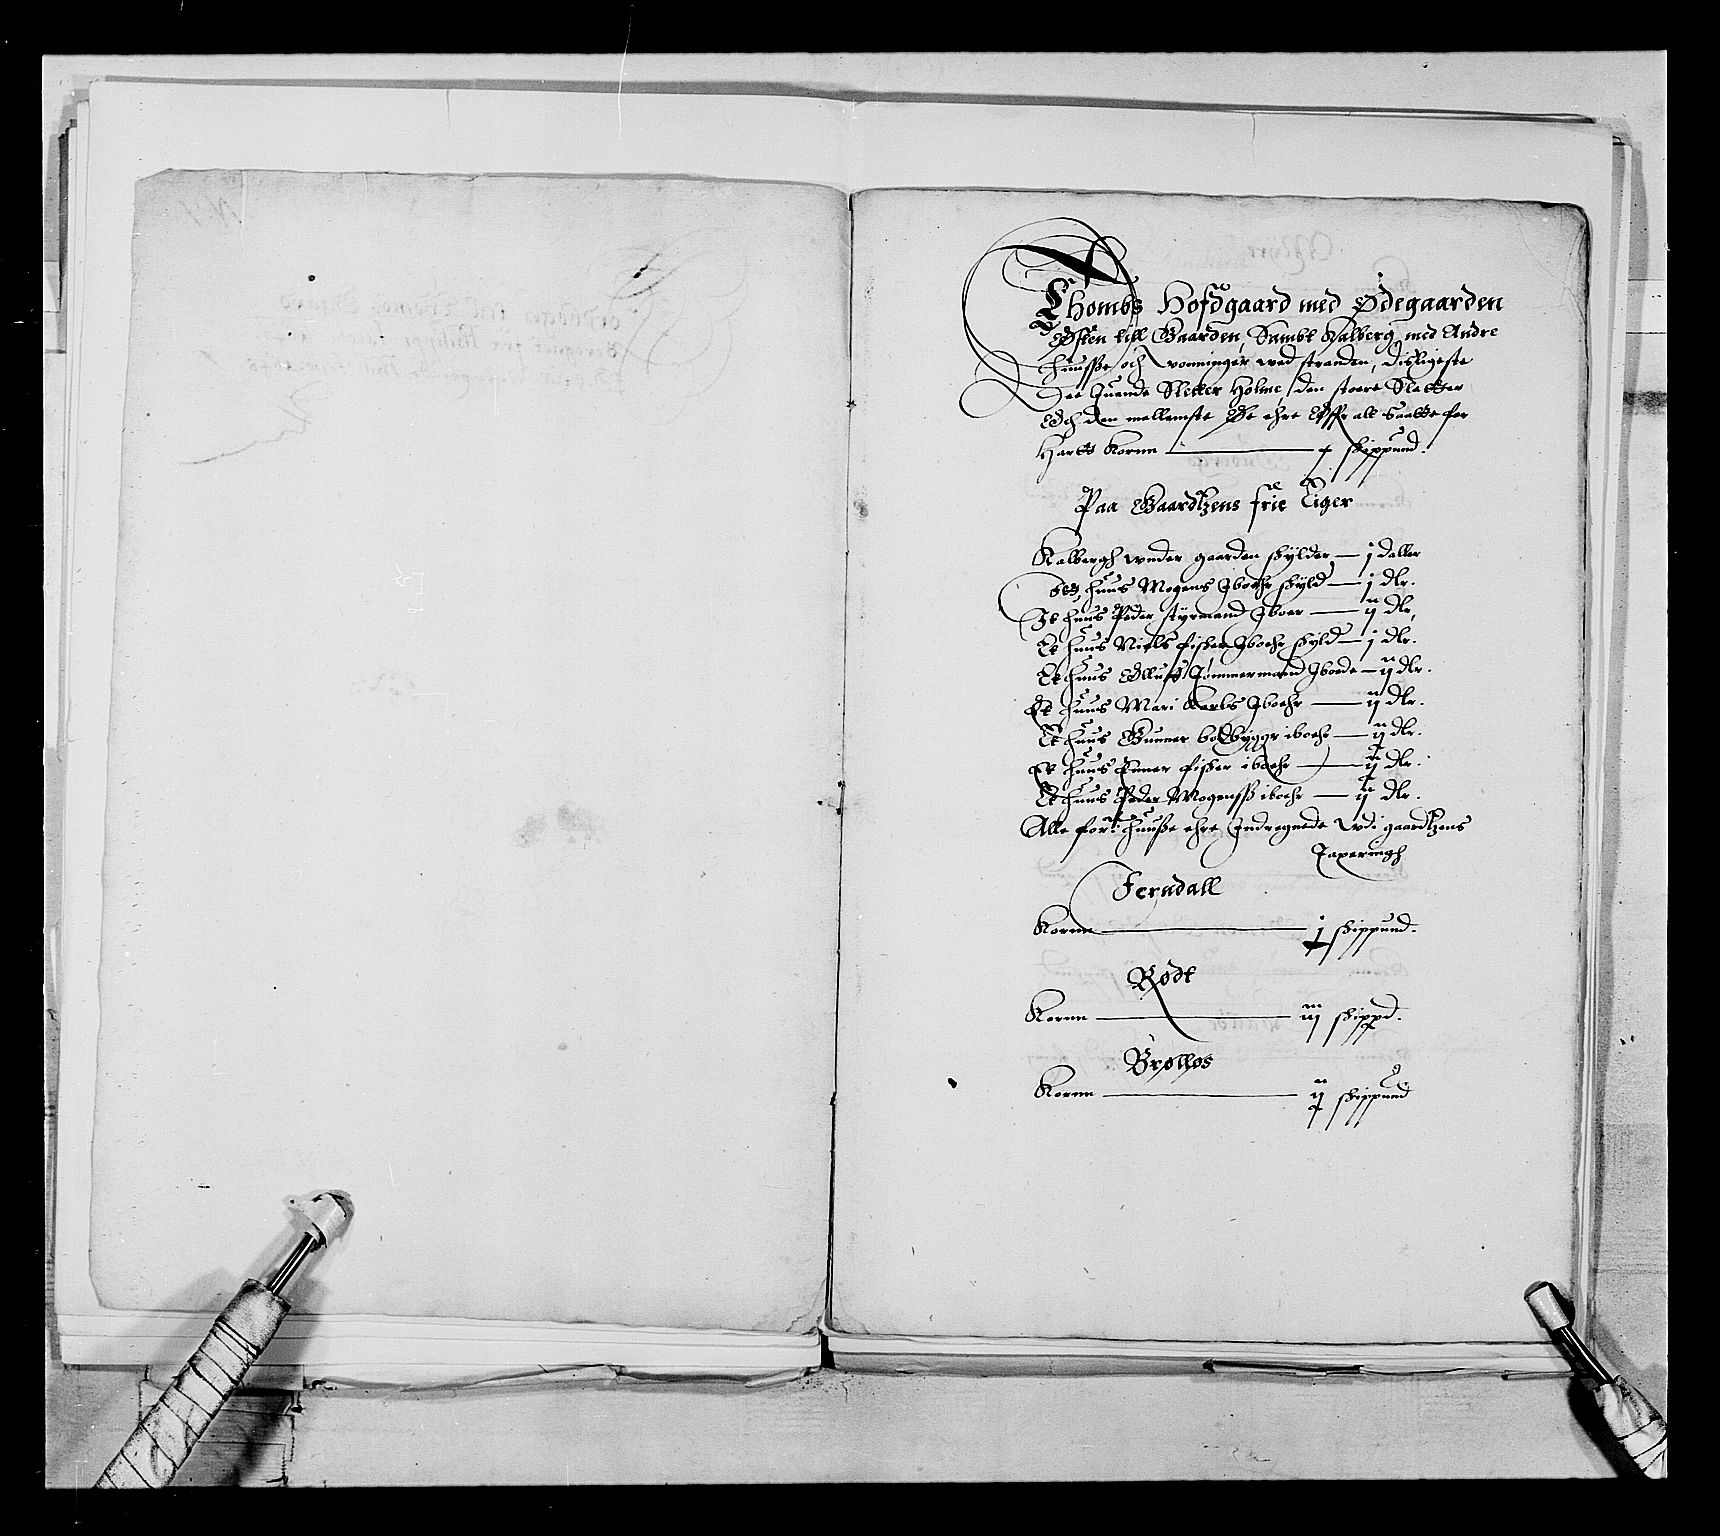 Thombs Hofdgaard med Ødegaarden
Østen till Gaarden Sambt Kalberg med Andre
Huusse och vonninger wed stranden, disligeste
Sletter Holme, den stoere Sletter
Och den mellemste ehre alt saatte for
Hartt Kornn — skippund.
Paa Gaardtzens frie Eiger
Kalbergh wnder gaarden skylder — j daller
huus Mogens Iboehr skyld — j dlr.
It huus Peder styrmand Iboer — ij dlr.
Et huus Niels fisker Iboehr skyld — j dlr.
Et huus Olluff Tømmermand Iboede — ij dlr.
Et huus Mari Karls Iboehr — ij dlr.
Et huus Gunner bodbyggr iboehr — ij dlr.
Et huus Einer fisker iboehr — ij dlr.
Et huus Peder Mogenss iboehr — ij dlr.
Alle for: huusse ehre Indregnede wdi gaardtzens
Taxeringh
Ferndall
Kornn — j skippund.
Rødt
Kornn — iij skippd.
Brølløs
Kornn — ij skippund